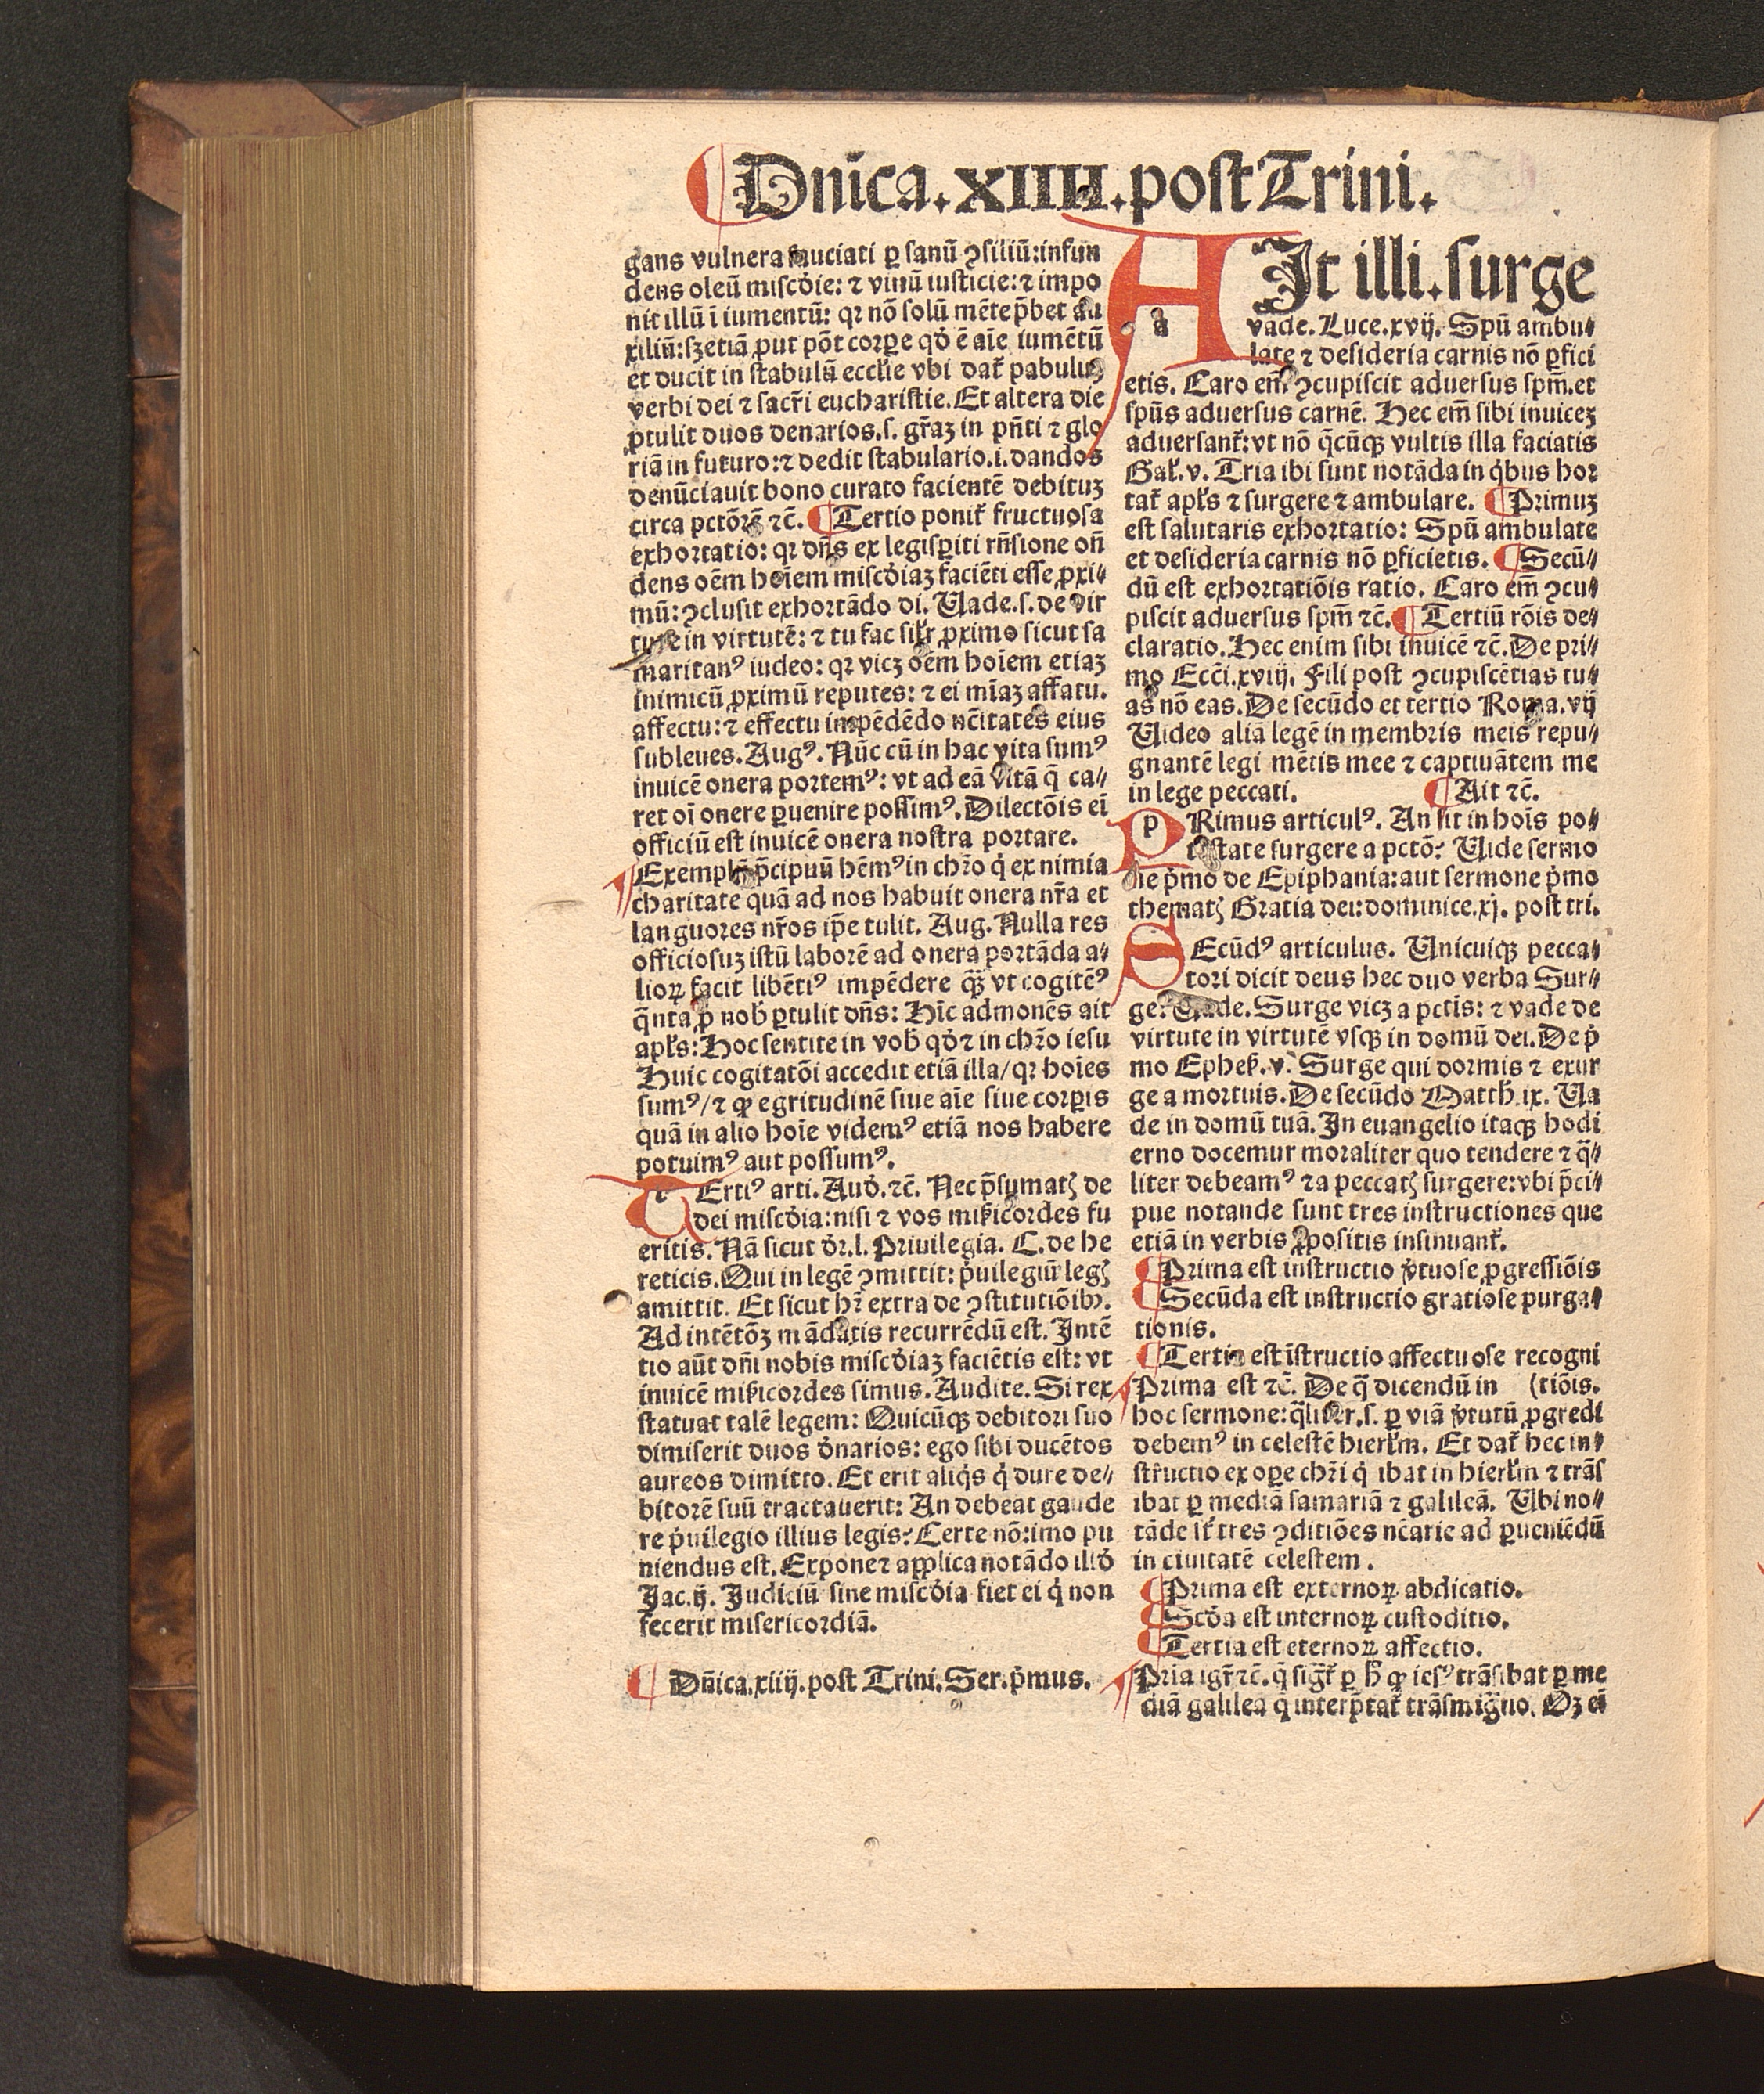 ¶ Dn̄ica. XIIII. post Trini.
gans vulnera sauciati ꝑ sanū ꝯsiliū: infun
dens oleū misc̄ð̄ie: ⁊ vinū iusticie: ⁊ impo
nit illū ī iumentū: qꝛ nō solū mēte p̄bet au
xiliū: sꝫ etiā ꝓut pōt corꝑe qð ē aīe iumētū
et ducit in stabulū eccl'ie vbi dat̄ pabulūꝫ
verbi dei ⁊ sacr̄i eucharistie. Et altera die
ꝓtulit duos denarios. s. gr̄aꝫ in pn̄ti ⁊ glo
riā in futuro: ⁊ dedit stabulario. i. dandos
denūciauit bono curato facientē debituꝫ
circa pctōꝛē ⁊c̄. ¶ Tertio ponit̄ fructuosa
exhortatio: qꝛ dn̄s ex legisꝑiti rn̄sione on̄
dens oēm hoīem miscð̄iaꝫ faciēti esse ꝓxi⸗
mū: ꝯclusit exhortādo di. Uade. s. de vir
tute in virtutē: ⁊ tu fac sil'r ꝓximo sicut sa
maritanꝰ iudeo: qꝛ vicꝫ oēm hoīem etiaꝫ
inimicū ꝓximū reputes: ⁊ ei mīaꝫ affatu.
affectu: ⁊ effectu impēdēdo nc̄itates eius
subleues. Augꝰ. Nūc cū in hac vita sumꝰ
inuicē onera portemꝰ: vt ad eā vitā q̄ ca⸗
ret oī onere ꝑuenire possimꝰ. Dilectōis ei̅
officiū est inuicē onera nostra portare.
¶ Exemplū p̄cipuū hēmꝰ in chr̄o q̇ ex nimia
charitate quā ad nos habuit onera nr̄a et
languores nr̄os ip̄e tulit. Aug. Nulla res
officiosuꝫ istū laborē ad onera portāda a⸗
lioꝝ facit libētiꝰ impēdere qꝙ̄ vt cogitēꝰ
q̄nta ꝓ nob̄ ꝑtulit dn̄s: Hīc admonēs ait
apl's: Hoc sentite in vob̄ qð ⁊ in chr̄o iesu
Huic cogitatōi accedit etiā illa/ qꝛ hoīes
sumꝰ/ ⁊ ꝙ egritudinē siue aīe siue corꝑis
quā in alio hoīe videmꝰ etiā nos habere
potuimꝰ aut possumꝰ.
TErtiꝰ arti. Auð. ⁊c̄. Nec p̄sumatꝭ de
dei miscð̄ia: nisi ⁊ vos mis̄icordes fu
eritis. Nā sicut ðꝛ. l. Priuilegia. C. de he
reticis. Qui in legē ꝯmittit: p̄uilegiū legꝭ
amittit. Et sicut hꝛ̄ extra de ꝯstitutiōibꝰ.
Ad intētōꝫ mādatis recurrēdū est. Intē
tio aūt dn̄i nobis miscð̄iaꝫ faciētis est: vt
inuicē mis̄icordes simus. Audite. Si rex
statuat talē legem: Quicūqꝫ debitori suo
dimiserit duos ðnarios: ego sibi ducētos
aureos dimitto. Et erit aliq̇s q̇ dure de⸗
bitorē suū tractauerit: An debeat gaude
re p̄uilegio illius legis? Certe nō: imo pu
niendus est. Expone ⁊ applica notādo illð
Jac. ij. Judiciū sine miscð̄ia fiet ei q̇ non
fecerit misericordiā.
¶ Dn̄ica. xiiij. post Trini. Ser. p̄mus.
AIt illi. surge
a vade. Luce. xvij. Spū ambu⸗
late ⁊ desideria carnis nō ꝑfici
etis. Caro em̄ ꝯcupiscit aduersus spm̄. et
spūs aduersus carnē. Hec em̄ sibi inuiceꝫ
aduersant̄: vt nō q̄cūqꝫ vultis illa faciatis
Gal'. v. Tria ibi sunt notāda in q̇bus hor
tat̄ apl's ⁊ surgere ⁊ ambulare. ¶ Primuꝫ
est salutaris exhortatio: Spū ambulate
et desideria carnis nō ꝑficietis. ¶ Secū⸗
dū est exhortatiōis ratio. Caro em̄ ꝯcu⸗
piscit aduersus spm̄ ⁊c̄. ¶ Tertiū rōis de⸗
claratio. Hec enim sibi inuicē ⁊c̄. De pri⸗
mo Ecci̅. xviij. Fili post ꝯcupiscētias tu⸗
as nō eas. De secūdo et tertio Roma. vij
Uideo aliā legē in membris meis repu⸗
gnantē legi mētis mee ⁊ captiuātem me
in lege peccati. ¶ Ait ⁊c̄.
PRimus articulꝰ. An sit in hoīs po⸗
testate surgere a pctō? Uide sermo
ne p̄mo de Epiphania: aut sermone p̄mo
thematꝭ Gratia dei: dominice. xj. post tri.
SEcūdꝰ articulus. Unicuiqꝫ pecca⸗
tori dicit deus hec duo verba Sur⸗
ge: Uade. Surge vicꝫ a pctīs: ⁊ vade de
virtute in virtutē vsqꝫ in domū dei. De p̄
mo Ephes̄. v. Surge qui dormis ⁊ exur
ge a mortuis. De secūdo Matth. ix. Ua
de in domū tuā. In euangelio itaqꝫ hodi
erno docemur moraliter quo tendere ⁊ q̄⸗
liter debeamꝰ ⁊ a peccatꝭ surgere: vbi p̄ci⸗
pue notande sunt tres instructiones que
etiā in verbis ꝓpositis insinuant̄.
¶ Prima est instructio v̄tuose ꝓgressiōis
¶ Secūda est instructio gratiose purga⸗
tionis.
¶ Tertia est īstructio affectuose recogni
¶ Prima est ⁊c̄. De q̄ dicendū in (tiōis.
hoc sermone: q̄liter. s. ꝑ viā v̄tutū ꝓgredi
debemꝰ in celestē hierl'm. Et dat̄ hec in⸗
structio ex oꝑe chr̄i q̇ ibat in hierl'm ⁊ trās
ibat ꝑ mediā samariā ⁊ galileā. Ubi no⸗
tāde st̄ tres ꝯditiōes nc̄arie ad ꝑueniēdū
in ciuitatē celestem.
¶ Prima est externoꝝ abdicatio.
¶ Scð̄a est internoꝝ custoditio.
¶ Tertia est eternoꝝ affectio.
¶ Pria igr̄ ⁊c̄. q̇ sig̅t̄ ꝑ h̄ ꝙ iesꝰ trāsibat ꝑ me
diā galilea q̇ interp̄tat̄ trāsmig̅tio. Oꝫ ei̅